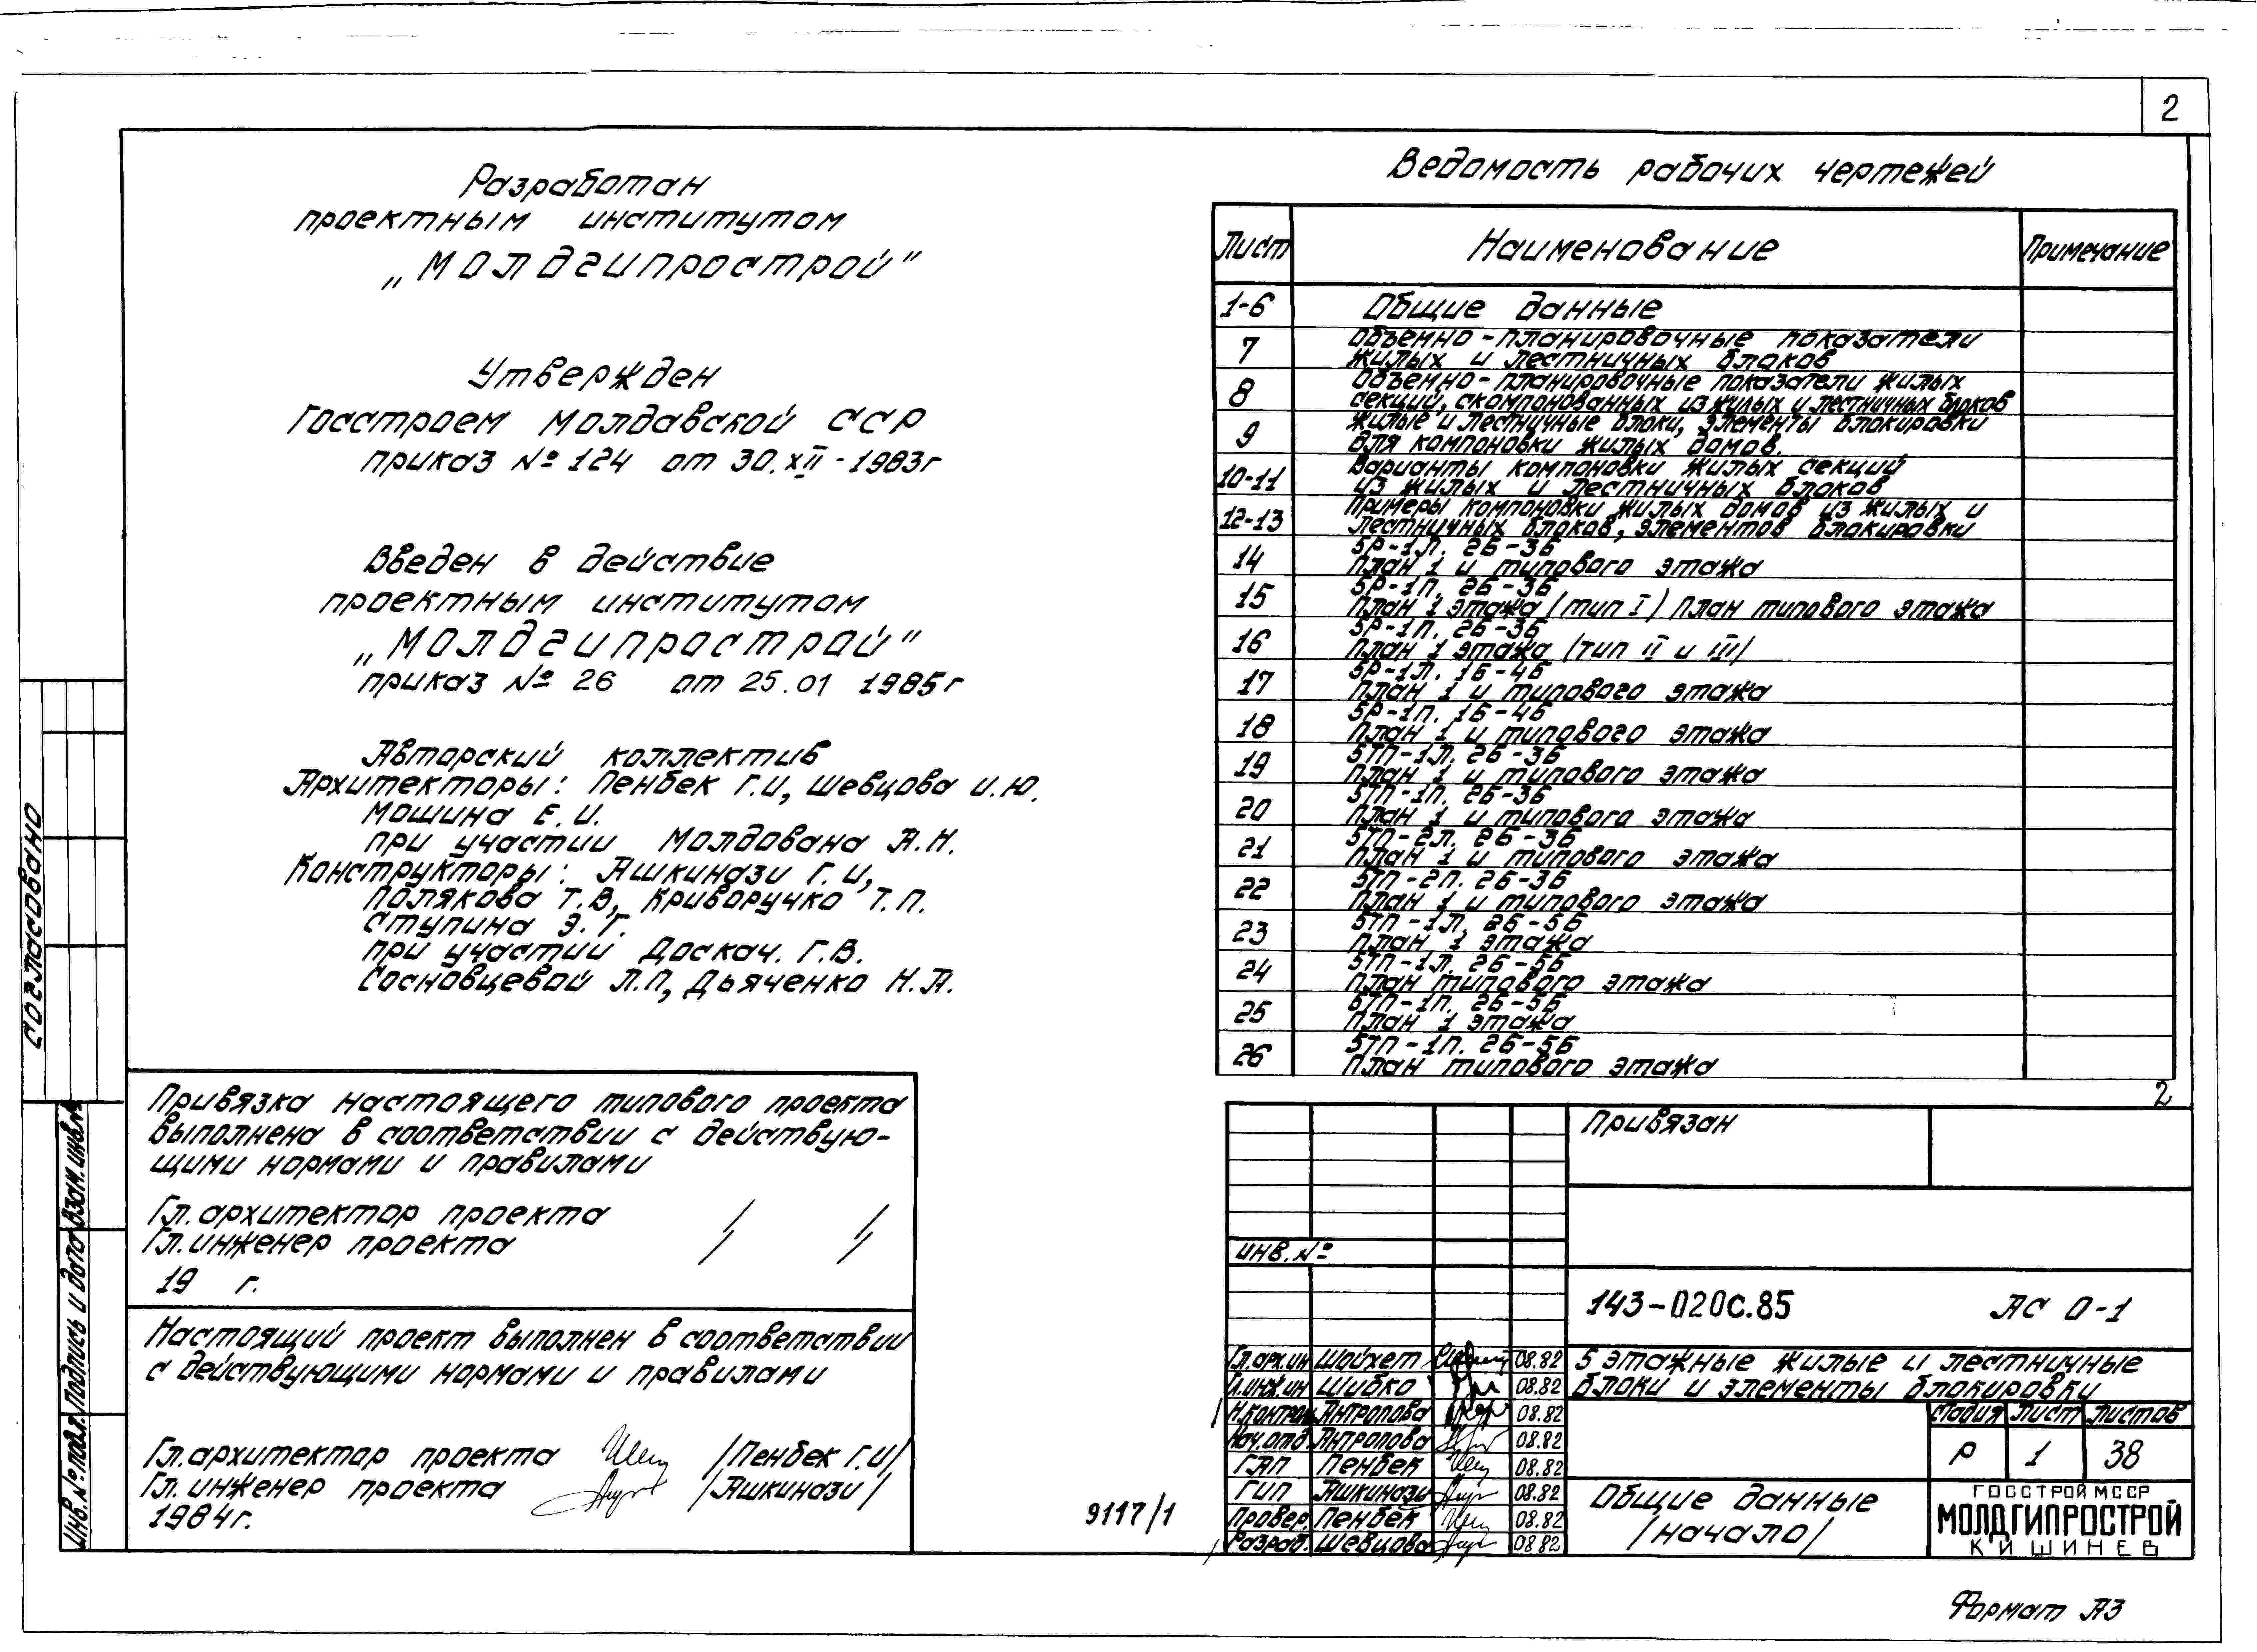 2
Разработан
проектным институтом
„Молдгипрострой”
Утвержден
Госстроем Молдавской ССР
приказ № 124 от 30.XII-1983г
Введен в действие
проектным институтом
„Молдгипрострой”
приказ № 26 от 25.01 1985г
Авторский коллектив
Архитекторы: Пенбек Г.И, Шевцова И.Ю.
Мошина Е.И.
при участии Молдована А.Н.
Конструкторы: Яшкинази Г.И,
Полякова Т.В, Криворучко Т.П.
Ступина Э.Г.
при участии Доскач. Г.В.
Сосновцевой Л.П, Дьяченко Н.А.
Привязка настоящего типового проекта
выполнена в соответствии с действую-
щими нормами и правилами
Гл. архитектор проекта / /
Гл. инженер проекта / /
19 г.
Настоящий проект выполнен в соответствии
с действующими нормами и правилами
Гл. архитектор проекта /Пенбек Г.И/
Гл. инженер проекта /Яшкинази/
1984г.
Согласовано
Взам. инв.№
Подпись и дата
Инв.№ подл.
Ведомость рабочих чертежей
Лист Наименование Примечание
1-6 Общие данные
7 Объемно-планировочные показатели
жилых и лестничных блоков
8 Объемно-планировочные показатели жилых
секций, скомпонованных из жилых и лестничных блоков
9 Жилые и лестничные блоки, элементы блокировки
для компоновки жилых домов.
10-11 Варианты компоновки жилых секций
из жилых и лестничных блоков
12-13 Примеры компоновки жилых домов из жилых и
лестничных блоков, элементов блокировки
14 5Р-1Л. 2Б-3Б
План 1 и типового этажа
15 5Р-1П. 2Б-3Б
План 1 этажа (тип I) План типового этажа
16 5Р-1П. 2Б-3Б
План 1 этажа /тип II и III/
17 5Р-1Л. 1Б-4Б
План 1 и типового этажа
18 5Р-1П. 1Б-4Б
План 1 и типового этажа
19 5ТП-1Л. 2Б-3Б
План 1 и типового этажа
20 5ТП-1П. 2Б-3Б
План 1 и типового этажа
21 5ТП-2Л. 2Б-3Б
План 1 и типового этажа
22 5ТП-2П. 2Б-3Б
План 1 и типового этажа
23 5ТП-1Л. 2Б-5Б
План 1 этажа
24 5ТП-1Л. 2Б-5Б
План типового этажа
25 5ТП-1П. 2Б-5Б
План 1 этажа
26 5ТП-1П. 2Б-5Б
План типового этажа
2
Привязан
Инв. №
143-020с.85 АС 0-1
Гл.арх.ин Шойхет 08.82
Гл.инж.ин Шибко 08.82
Н.контрол Антропова 08.82
Нач.отд Антропова 08.82
ГАП Пенбек 08.82
ГИП Яшкинази 08.82
Провер. Пенбек 08.82
Разраб. Шевцова 08.82
5 этажные жилые и лестничные
блоки и элементы блокировки
Стадия Лист Листов
Р 1 38
Общие данные
/начало/
ГОССТРОЙ МССР
МОЛДГИПРОСТРОЙ
КИШИНЕВ
9117/1
Формат А3